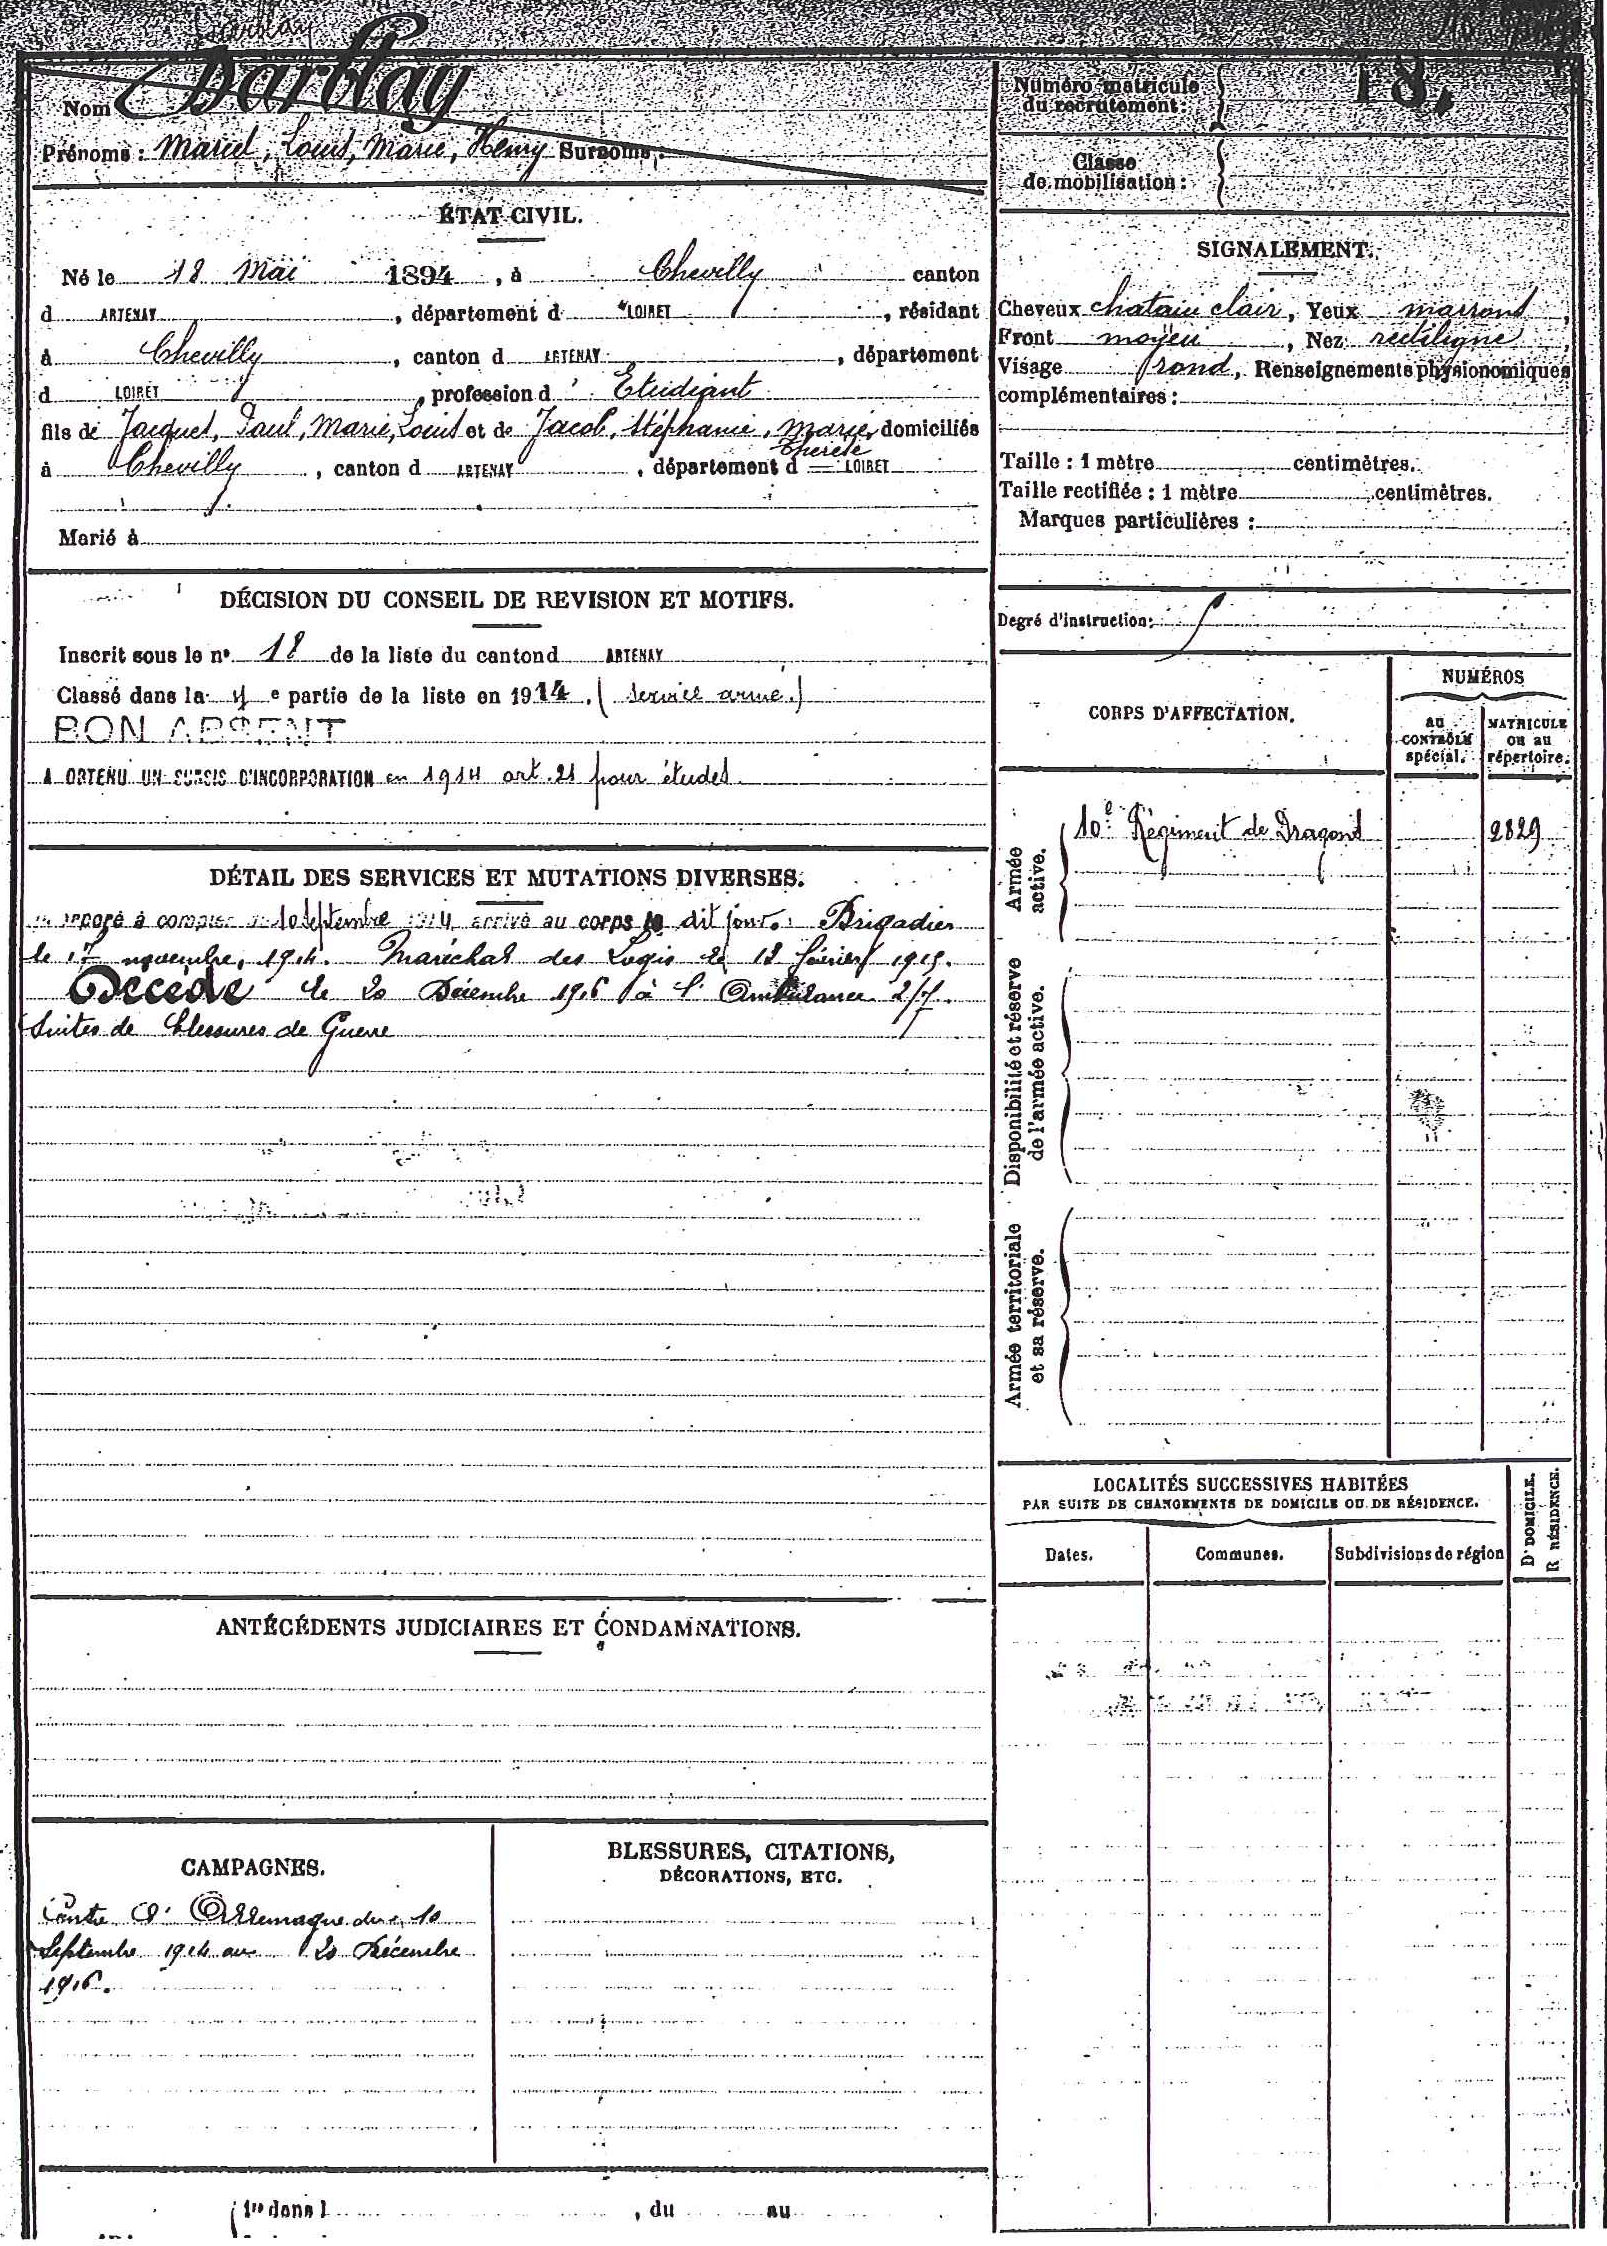 Darblay
Nom Darblay
Prénoms : Marcel, Louis, Marie, Henry Surnoms :
Numéro matricule
du recrutement :
18.
Classe
de mobilisation :
ÉTAT CIVIL.
Né le 18 Mai 1894, à Chevilly canton
d ARTENAY, département d LOIRET, résidant
à Chevilly, canton d ARTENAY, département
d LOIRET, profession d' Etudiant
fils de Jacques, Paul, Marie, Louis et de Jacob, Stéphanie, Marie, domiciliés
Thérèse
à Chevilly, canton d ARTENAY, département d LOIRET
Marié à
SIGNALEMENT.
Cheveux chatain clair, Yeux marrons,
Front moyen, Nez rectiligne,
Visage rond, Renseignements physionomiques
complémentaires :
Taille : 1 mètre centimètres.
Taille rectifiée : 1 mètre centimètres.
Marques particulières :
Degré d'instruction :
DÉCISION DU CONSEIL DE REVISION ET MOTIFS.
Inscrit sous le n° 18 de la liste du canton d ARTENAY
Classé dans la e partie de la liste en 1914. (service armé.)
BON ABSENT
A OBTENU UN SURSIS D'INCORPORATION en 1914 art. 21 pour études.
DÉTAIL DES SERVICES ET MUTATIONS DIVERSES.
Incorporé à compter du 10 Septembre 1914, arrivé au corps le dit jour. Brigadier
le 17 novembre, 1914. Maréchal des Logis le 18 février 1915.
Décédé le 20 Décembre 1916 à l'Ambulance 2/7.
Suites de blessures de Guerre
CORPS D'AFFECTATION.
NUMÉROS
AU
CONTRÔLE
spécial.
MATRICULE
OU AU
répertoire.
Armée
active.
10e Régiment de Dragons 2829
Disponibilité et réserve
de l'armée active.
Armée territoriale
et sa réserve.
LOCALITÉS SUCCESSIVES HABITÉES
PAR SUITE DE CHANGEMENTS DE DOMICILE OU DE RÉSIDENCE.
Dates.
Communes.
Subdivisions de région
D. DOMICILE.
R. RÉSIDENCE.
ANTÉCÉDENTS JUDICIAIRES ET CONDAMNATIONS.
CAMPAGNES.
Contre l'Allemagne du 10
Septembre 1914 au 20 Décembre
1916.
BLESSURES, CITATIONS,
DÉCORATIONS, ETC.
1re dans l , du au